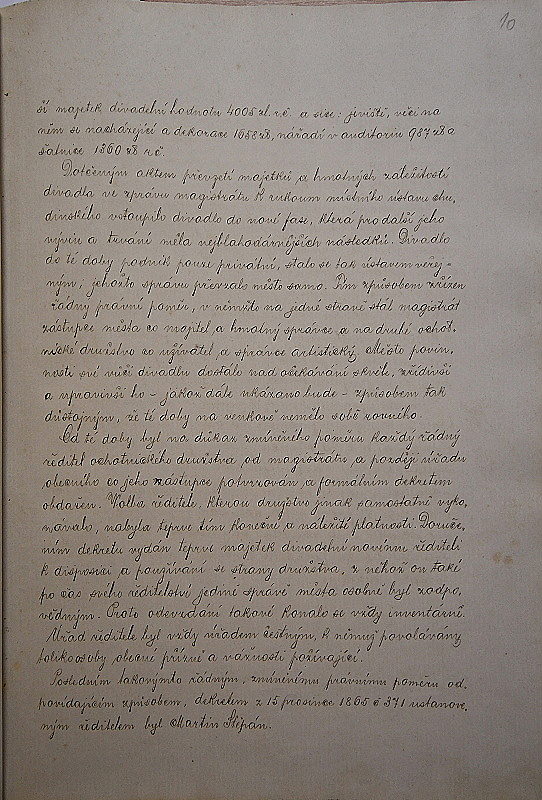 10
ší majetek divadelní hodnotu 4005 zl. r.č. a sice: jeviště, věci na
něm se nacházející a dekorace 1658 zl, nářadí v auditoriu 987 zl a
šatnice 1360 zl r.č.
Dotčeným aktem převzetí majetků a hmotných záležitostí
divadla ve správu magistrátu k rukoum místního ústavu chu,
dinského vstoupilo divadlo do nové fase, která pro další jeho
vývin a trvání měla nejblahodárnějších následků. Divadlo
do té doby podnik pouze privátní, stalo se tak ústavem veřej-
ným, jehožto správu převzalo město samo. Tím způsobem zřízen
řádný právní poměr, v němžto na jedné straně stál magistrát
zástupce města co majitel a hmotný správce a na druhé ochot,
nické družstvo co uživatel a správce artistický. Město povin,
nosti své vůči divadlu dostálo nad očekávání skvěle, zřídivši
a upravivši ho - jakož dále ukázáno bude - způsobem tak
důstojným, že té doby na venkově nemělo sobě rovného.
Od té doby byl na důkaz zmíněného poměru každý řádný
ředitel ochotnického družstva od magistrátu a později úřadu
obecního co jeho zástupce potvrzován a formálním dekretem
obdařen. Volba ředitele, kterou družstvo jinak samostatně vyko,
návalo, nabyla teprve tím konečné a náležité platnosti. Doruče,
ním dekretu vydán teprve majetek divadelní novému řediteli
k disposici a používání se strany družstva, z něhož on také
po čas svého ředitelství jedině správě města osobně byl zodpo,
vědným. Proto odevzdání takové konalo se vždy inventárně.
Úřad ředitele byl vždy úřadem čestným, k němuž povolávány
toliko osoby obecné přízně a vážnosti požívající.
Posledním takovýmto řádným, zmíněnému právnímu poměru od,
povídajícím způsobem, dekretem z 15 prosince 1865 č 371 ustanove,
ným ředitelem byl Martin Štěpán.